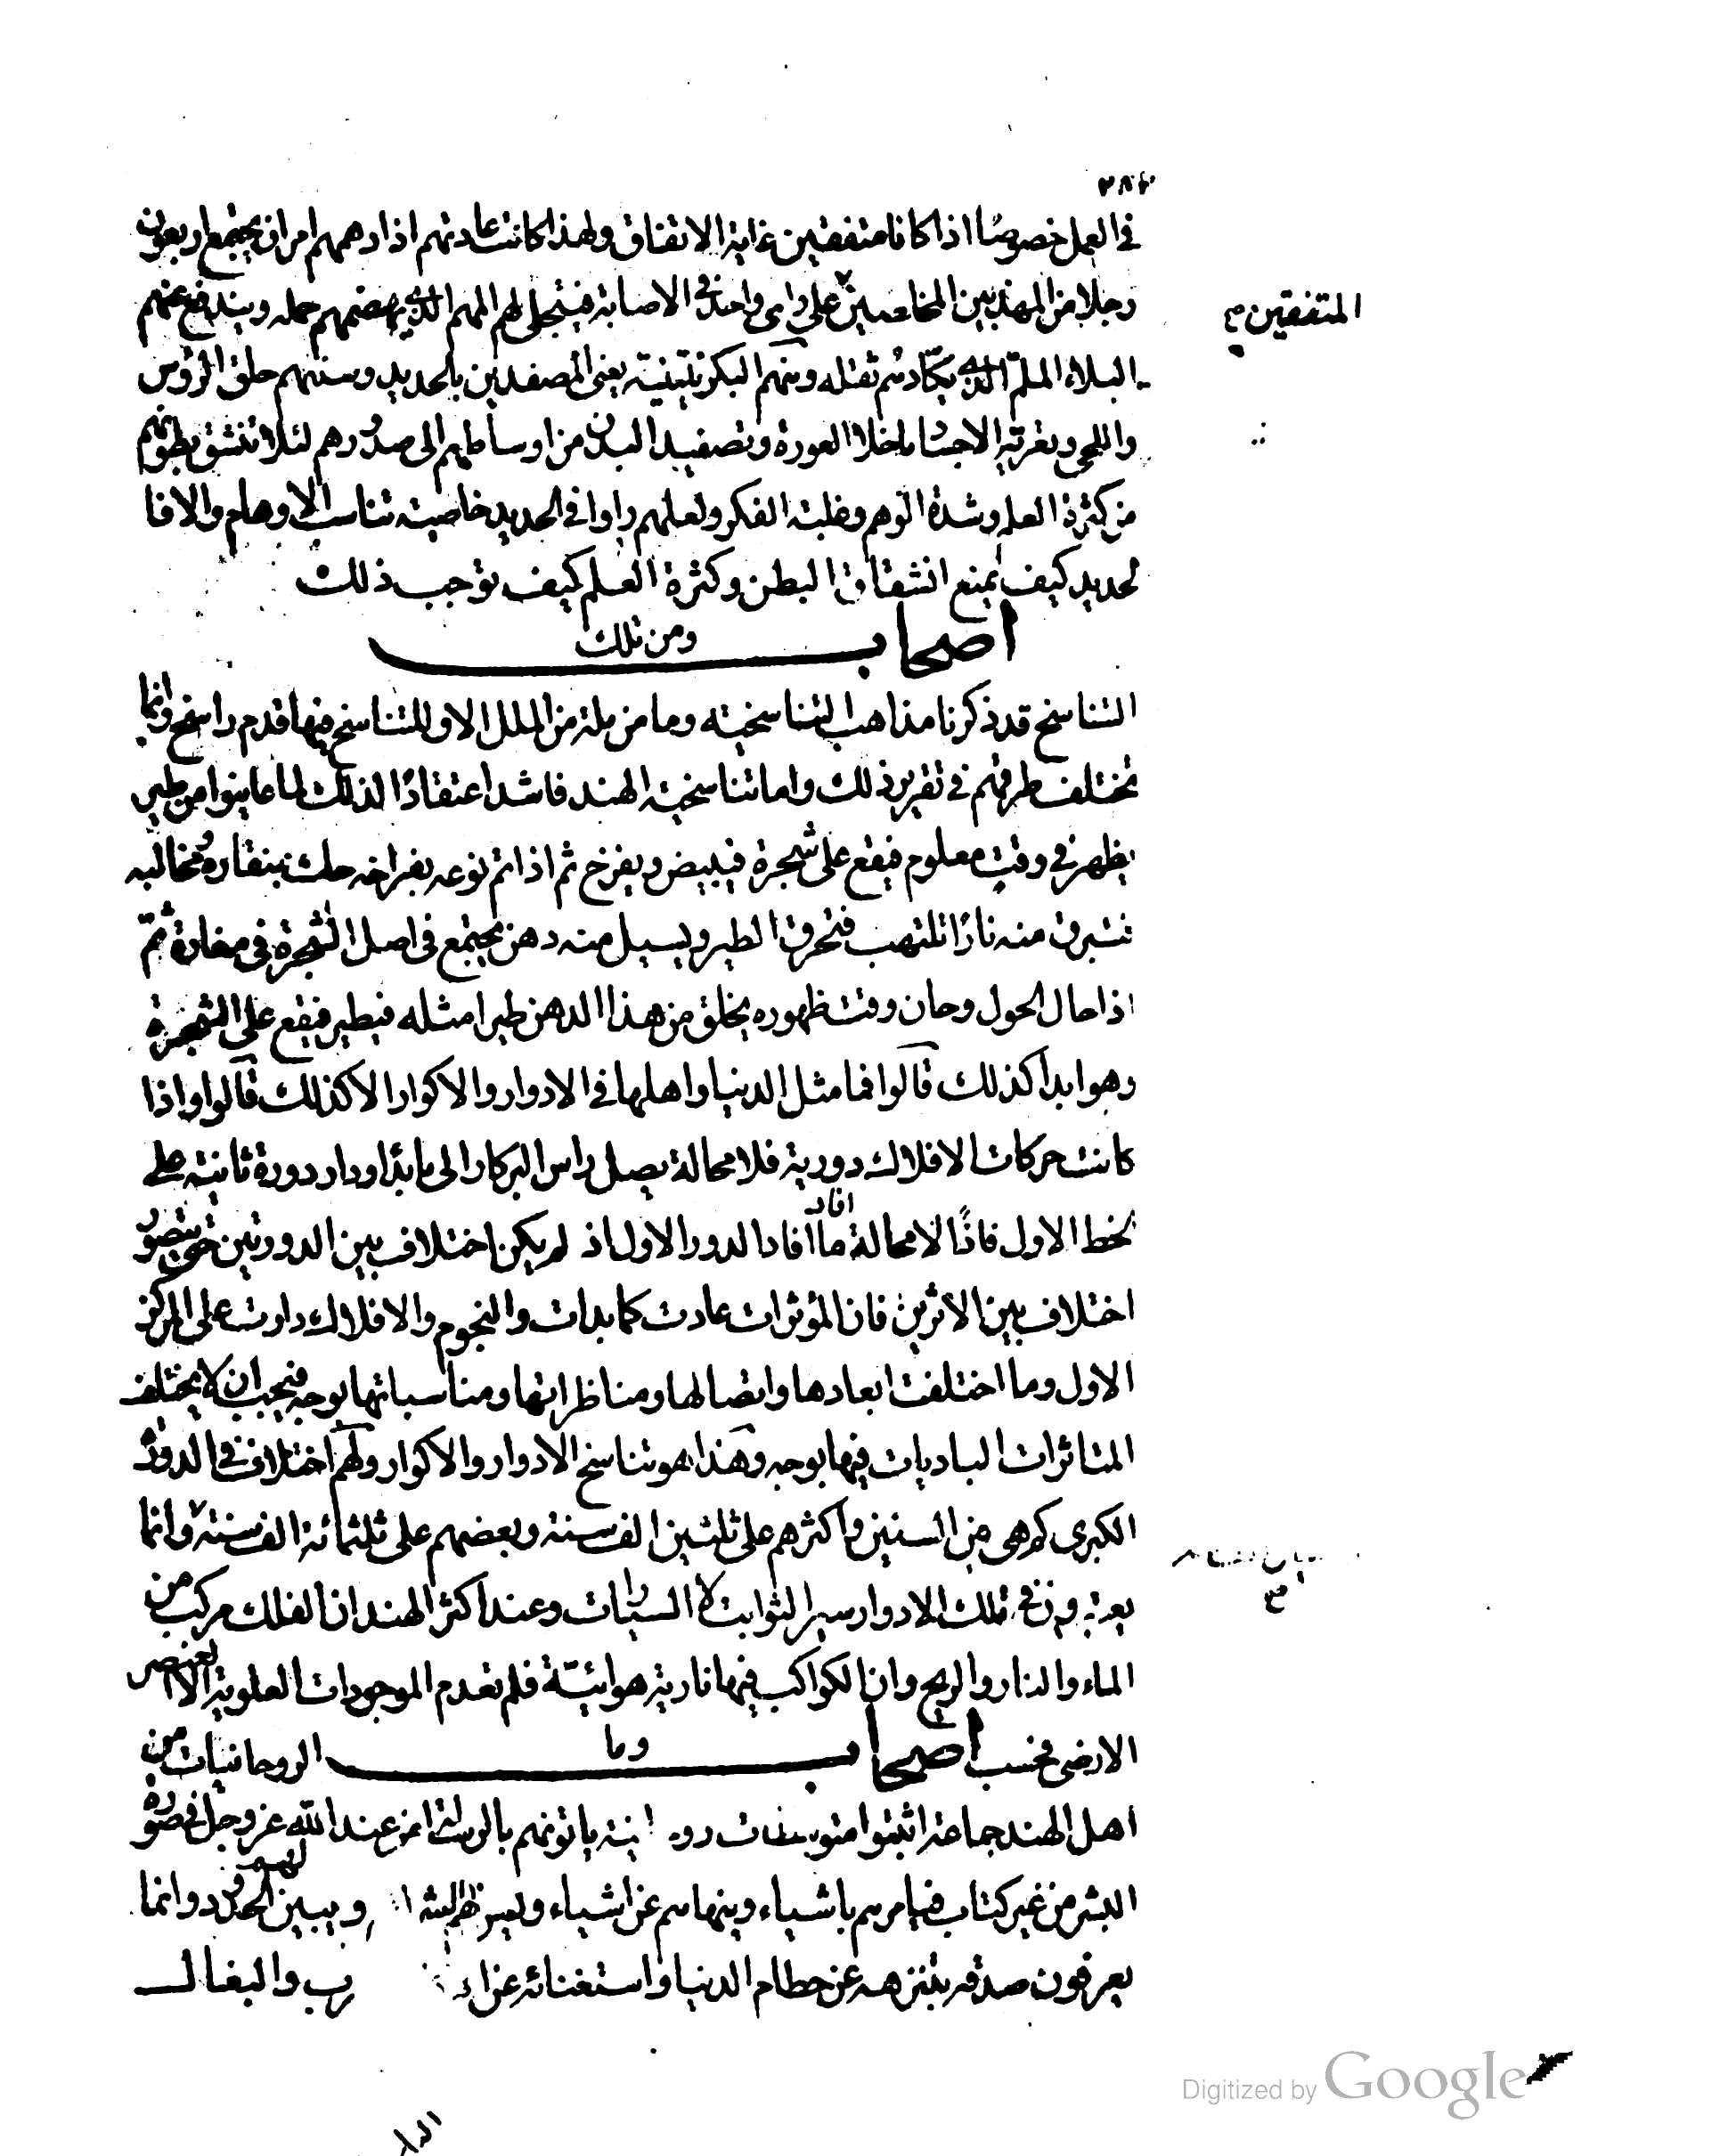 ٢٨٢
في العمل خصوصًا اذا كانا متفقين غاية الاتفاق ولهذا كانت عادتهم اذا دهمهم امر ان يجتمع اربعون
رجلا من المهذبين المخلصين على راى واحد فى الاصابة فيتجلى لهم المهم الذي يهضمهم حمله ويندفع عنهم
المتفقين
البلاء الملمّ الذي يكادهم ثقله ومنهم البكرنتينية يعنى المصفدين بالحديد وسنتهم حلق الرؤس
واللحى وتعرية الاجساد ما خلا العورة وتصفيد البدن من اوساطهم الى صدورهم لئلا تنشق بطونهم
من كثرة العلم وشدة الوهم وغلبة الفكر ولعلهم راوا في الحديد خاصية تناسب الاوهام والا فا
لحديد كيف يمنع انشقاق البطن وكثرة العلم كيف توجب ذلك
ومن تلك اصحاب
التناسخ قد ذكرنا مذاهب التناسخية وما من ملة من الملل الا وللتناسخ فيها قدم راسخ وانما
تختلف طرقهم في تقرير ذلك واما تناسخية الهند فاشد اعتقادًا لذلك لما عاينوا من طير
يظهر في وقت معلوم فيقع على شجرة فيبيض ويفرخ ثم اذا تم نوعه بفراخه حك بمنقاره ومخالبه
فتبرق منه نارًا تلتهب فتحرق الطير ويسيل منه دهن يجتمع في اصل الشجرة في مغارة ثم
اذا حال الحول وحان وقت ظهوره يخلق من هذا الدهن طيرا مثله فيطير فيقع على الشجرة
وهو ابدا كذلك قالوا فما مثل الدنيا واهلها في الادوار والاكوار الا كذلك قالوا واذا
كانت حركات الافلاك دورية فلا محالة يصل راس البركار الى ما بدا ودار دورة ثانية على
لخط الاول فاذًا لا محالة ما افاد الدور الاول اذ لم يكن اختلاف بين الدورتين حتى يتصور
افاد
اختلاف بين الاثرين فان المؤثرات عادت كما بدات والنجوم والافلاك دارت على المركز
الاول وما اختلفت ابعادها واتصالها ومناظراتها ومناسباتها بوجه فيجب ان لا يختلف
المتاثرات الباديات فيها بوجه وهذا هو تناسخ الادوار والاكوار ولهم اختلاف في الدورة
الكبرى كم هى من السنين واكثرهم على ثلثين الف سنة وبعضهم على ثلثمائة الف سنة وانما
يعتبرون في تلك الادوار سير الثوابت لا السيارات وعند اكثر الهند ان الفلك مركب من
الماء والنار والريح وان الكواكب فيها نارية هوائية فلم تعدم الموجودات العلوية الا العنصر
الارضى فحسب اصحاب وما الروحانيات من
اهل الهند جماعة اثبتوا متوسطات روحانية ياتونهم بالرسالة من عند الله عز وجل في صورة
البشر من غير كتاب فيامرهم باشياء وينهاهم عن اشياء ويسن لهم الشرائع ويبين لهم الحدود وانما
يعرفون صدقه بتنزهه عن حطام الدنيا واستغنائه عن رب والبغال